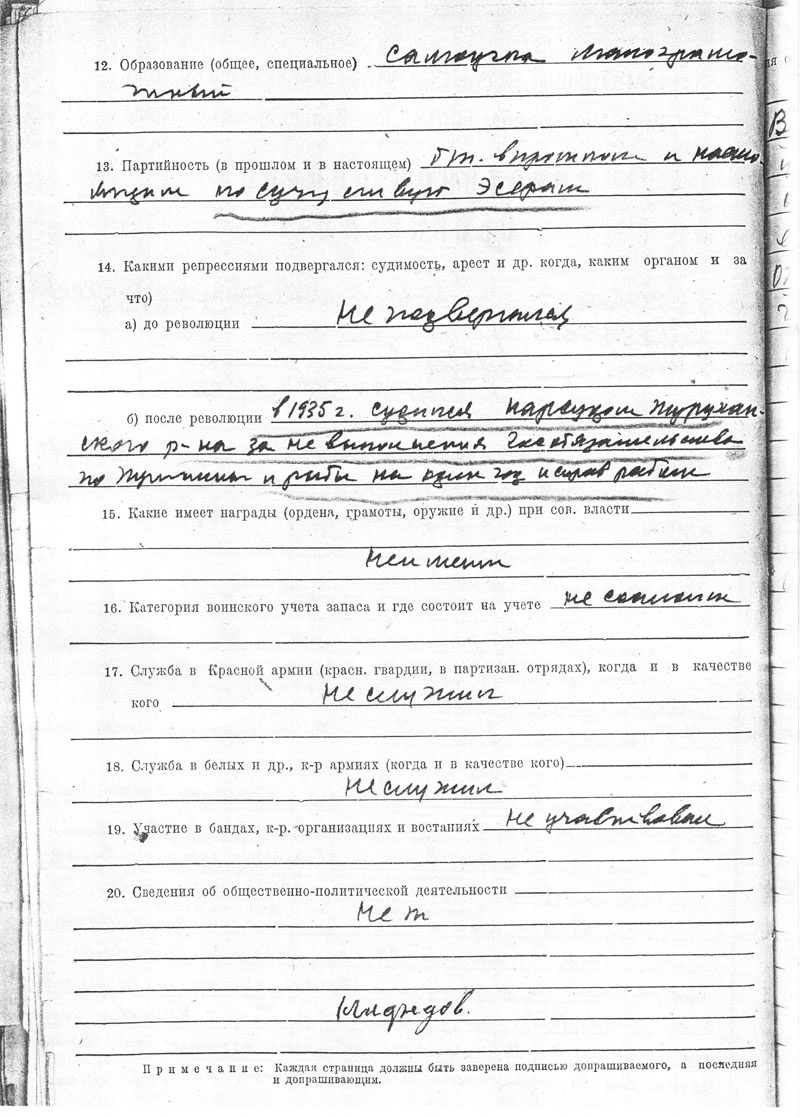 12. Образование (общее, специальное) самоучка малограмо-
тный
13. Партийность (в прошлом и в настоящем) б/п. в прошлом и насто-
эсерам
14. Какими репрессиями подвергался: судимость, арест и др. когда, каким органом и за
что)
а) до революции Не подвергался
б) после революции в 1935 г. судился нарсудом Турухан-
ского р-на за не выполнения обязательства
по пушнины и рыбы на один год исправ работ
15. Какие имеет награды (ордена, грамоты, оружие й др.) при сов. власти
Не имеет
16. Категория воинского учета запаса и где состоит на учете не состоит
17. Служба в Красной армии (красн. гвардии, в партизан. отрядах), когда и в качестве
кого Не служил
18. Служба в белых и др., к-р армиях (когда и в качестве кого)
Не служил
19. Участие в бандах, к-р. организациях и востаниях Не участвовал
20. Сведения об общественно-политической деятельности
Нет
Примечание: Каждая страница должны быть заверена подписью допрашиваемого, а последняя
и допрашивающим.